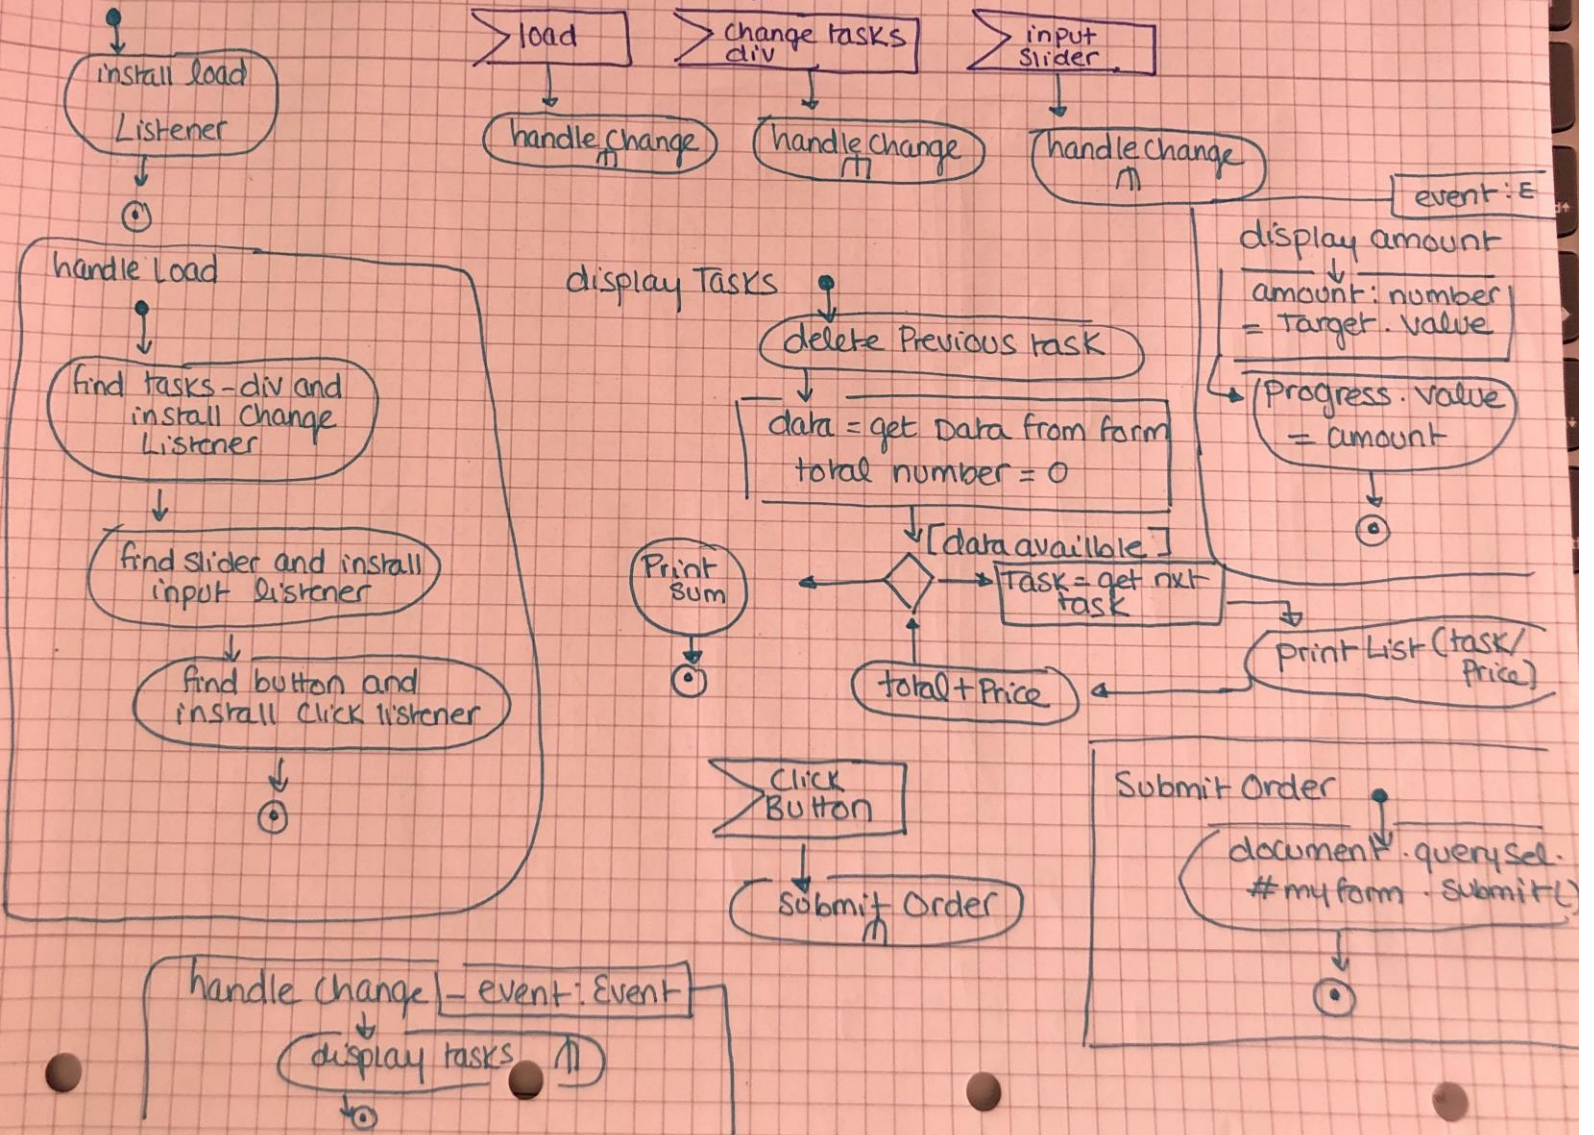 install load
Listener
load
change tasks
div
input
slider
handle change
handle change
handle change
event : E
display amount
amount : number
= Target . value
Progress . value
= amount
handle Load
find tasks-div and
install change
Listener
find slider and install
input listener
find button and
install click listener
display Tasks
delete Previous task
data = get Data from form
total number = 0
[data availlble]
Print
sum
Task = get nxt
task
print List (task/
Price)
total + Price
Click
Button
Submit Order
Submit Order
document . querySel.
#myform . submit()
handle change - event : Event
display tasks